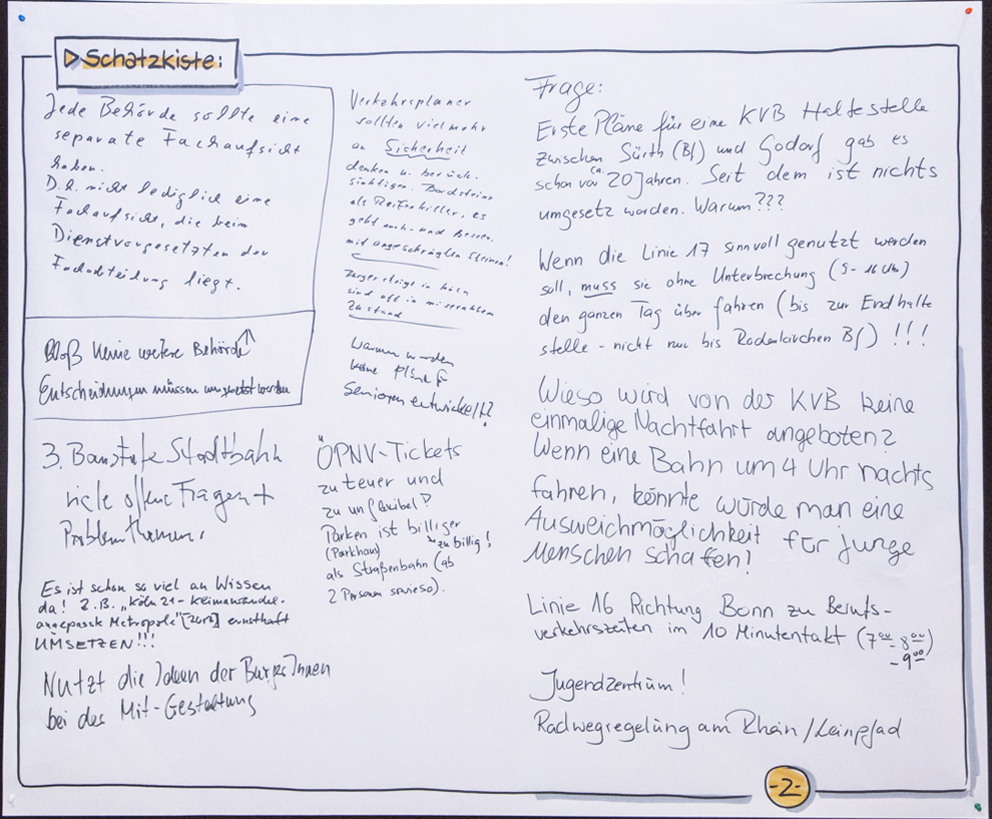 Schatzkiste:
Jede Behörde sollte eine
separate Fachaufsicht
haben.
D.h. nicht lediglich eine
Fachaufsicht, die beim
Dienstvorgesetzten der
Fachabteilung liegt.
Bloß keine weitere Behörde
Entscheidungen müssen umgesetzt werden
3. Baustufe Stadtbahn
viele offene Fragen +
Problemthemen.
Es ist schon so viel an Wissen
da! Z.B. „Köln 21 - Klimawandel-
angepasste Metropole" [2013] ernsthaft
UMSETZEN!!!
Nutzt die Ideen der BürgerInnen
bei der Mit-Gestaltung
Verkehrsplaner
sollten vielmehr
an Sicherheit
denken u. berück-
sichtigen. Bordsteine
als Reifenkiller, es
geht auch und besser,
mit angeschrägten Steinen!
sind oft in miserablem
Zustand
Warum werden
keine Pläne f.
Senioren entwickelt?
ÖPNV-Tickets
zu teuer und
zu unflexibel?
Parken ist billiger
(Parkhaus) zu billig!
als Straßenbahn (ab
2 Personen sowieso).
Frage:
Erste Pläne für eine KVB Haltestelle
zwischen Sürth (Bf) und Godorf gab es
schon vor ca. 20 Jahren. Seit dem ist nichts
umgesetz worden. Warum???
Wenn die Linie 17 sinnvoll genutzt werden
soll, muss sie ohne Unterbrechung (5- 16 Uhr)
den ganzen Tag über fahren (bis zur Endhalte
stelle - nicht nur bis Rodenkirchen Bf) !!!
Wieso wird von der KVB keine
einmalige Nachtfahrt angeboten?
Wenn eine Bahn um 4 Uhr nachts
fahren, könnte würde man eine
Ausweichmöglichkeit für junge
Menschen schafen!
Linie 16 Richtung Bonn zu Berufs-
verkehrszeiten im 10 Minutentakt (7⁰⁰- 8⁰⁰)
- 9⁰⁰
Jugendzentrum!
Radwegregelung am Rhein / Leinpfad
-2-